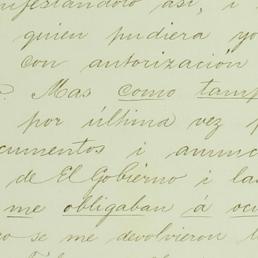 nifestándolo así, i
quien pudiera yo
con autorización
Mas como tamp
por última vez p
cumentos i anunc
de El Gobierno i las
me obligaban á ocu
o se me devolvieron l